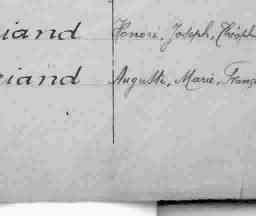 iand Honoré, Joseph, Théoph
iand Auguste, Marie, Franç